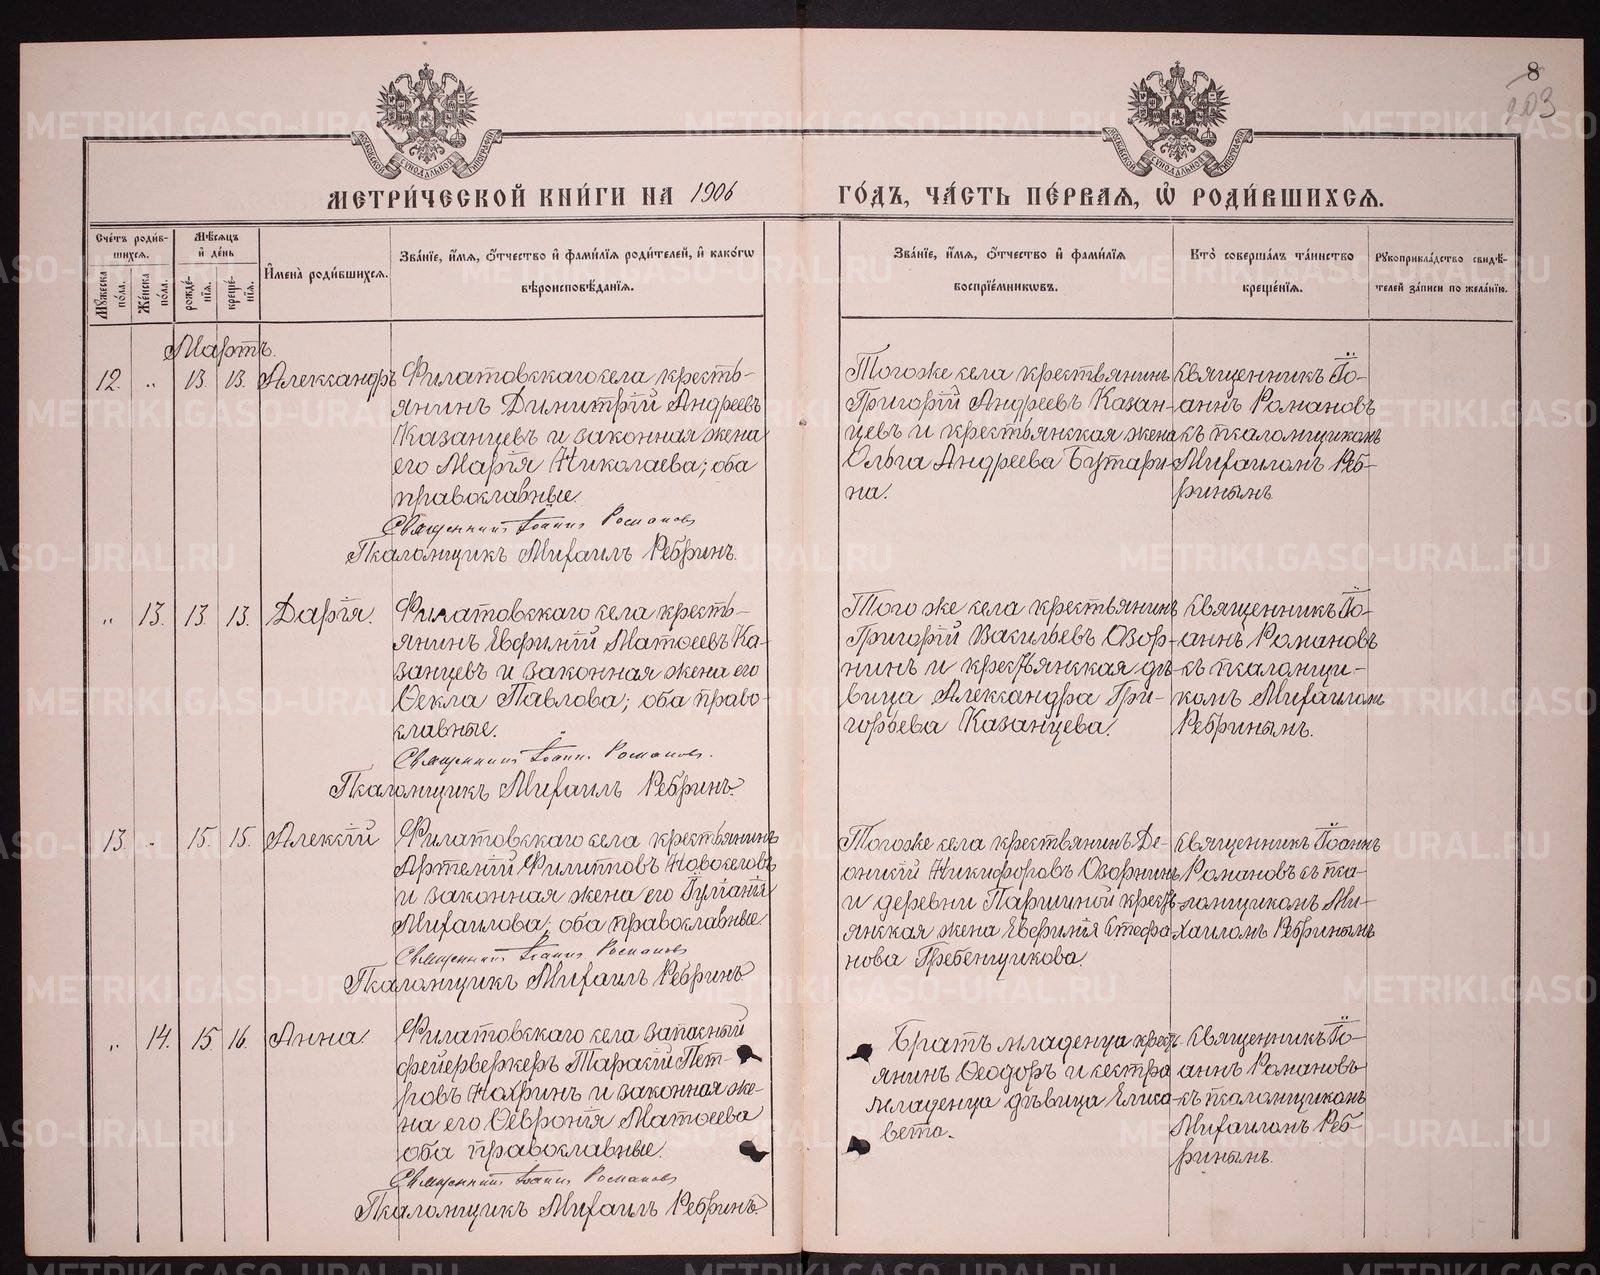 8
203
МЕТРИ́ЧЕСКОЙ КНИ́ГИ НА 1906 ГО́ДЪ, ЧА́СТЬ ПЕ́РВАЯ, Ѡ҆ РОДИ́ВШИХСЯ.
Сче́тъ роди́в-
шихся.
Мꙋ́жеска по́ла.
Же́нска по́ла.
Мѣ́сяцъ
и҆ де́нь
рожде́нїя.
креще́нїя.
И҆мена̀ роди́вшихся.
Зва́нїе, и҆́мя, ѻ҆́тчество и҆ фами́лїя роди́телей, и҆ како́гѡ
вѣроисповѣ́данїя.
Зва́нїе, и҆́мя, ѻ҆́тчество и҆ фами́лїя
воспрїе́мникѡвъ.
Кто̀ соверша́лъ та́инство
креще́нїя.
Рꙋкоприкла́дство свидѣ́-
телей за́писи по жела́нїю.
Мартъ.
12. „ 13. 13. Александръ
Филатовскаго села кресть-
янинъ Димитрій Андреевъ
Казанцевъ и законная жена
его Марія Николаева; оба
православные.
Священникъ Іоаннъ Романовъ
Псаломщикъ Михаилъ Ребринъ.
Того же села крестьянинъ
Григорій Андреевъ Казан-
цевъ и крестьянская жена
Ольга Андреева Бутари-
на.
Священникъ Іо-
аннъ Романовъ
съ псаломщикомъ
Михаиломъ Реб-
ринымъ.
„ 13. 13. 13. Дарія.
Филатовскаго села кресть-
янинъ Евфимій Матѳеевъ Ка-
занцевъ и законная жена его
Ѳекла Павлова; оба право-
славные.
Священникъ Іоаннъ Романовъ.
Псаломщикъ Михаилъ Ребринъ.
Того же села крестьянинъ
Григорій Васильевъ Озор-
нинъ и крестьянская дѣ-
вица Александра Гри-
горьева Казанцева.
Священникъ Іо-
аннъ Романовъ
съ псаломщи-
комъ Михаиломъ
Ребринымъ.
13. „ 15. 15. Алексій
Филатовскаго села крестьянинъ
Артемій Филипповъ Новоселовъ
и законная жена его Іуліанія
Михаилова; оба православные.
Священникъ Іоаннъ Романовъ
Псаломщикъ Михаилъ Ребринъ
Того же села крестьянинъ Де-
онисій Никифоровъ Озорнинъ
и деревни Паршиной крест-
янская жена Евфимія Стефа-
нова Гребенщикова.
Священникъ Іоаннъ
Романовъ съ пса-
ломщикомъ Ми-
хаиломъ Ребринымъ
„ 14. 15. 16. Анна.
Филатовскаго села запасный
фейерверкеръ Тарасій Пет-
ровъ Нохринъ и законная же-
на его Ѳевронія Матѳеева
оба православные.
Священникъ Іоаннъ Романовъ
Псаломщикъ Михаилъ Ребринъ.
Братъ младенца крест-
янинъ Ѳеодоръ и сестра
младенца дѣвица Елиса-
вета.
Священникъ Іо-
аннъ Романовъ
съ псаломщикомъ
Михаиломъ Реб-
ринымъ.
METRIKI.GASO-URAL.RU